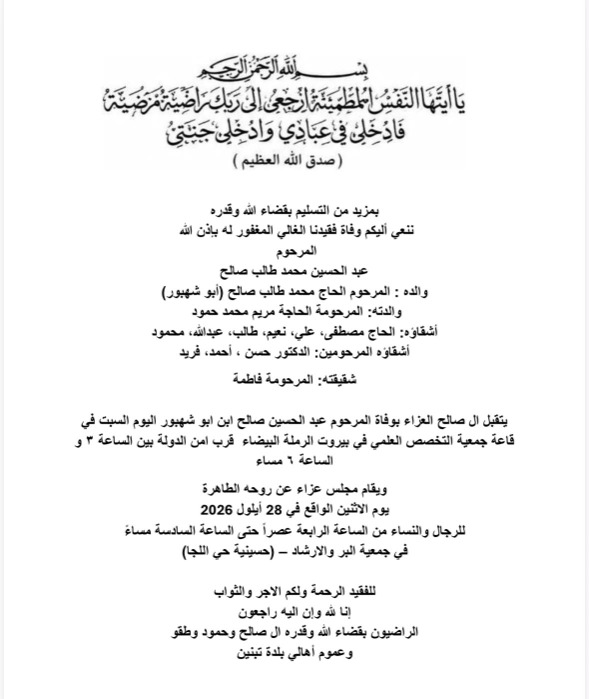 بسم الله الرحمن الرحيم
يا أيتها النفس المطمئنة ارجعي إلى ربك راضية مرضية
فادخلي في عبادي وادخلي جنتي
( صدق الله العظيم )
بمزيد من التسليم بقضاء الله وقدره
ننعي أليكم وفاة فقيدنا الغالي المغفور له بإذن الله
المرحوم
عبد الحسين محمد طالب صالح
والده : المرحوم الحاج محمد طالب صالح (أبو شهبور)
والدته: المرحومة الحاجة مريم محمد حمود
أشقاؤه: الحاج مصطفى، علي، نعيم، طالب، عبدالله، محمود
أشقاؤه المرحومين: الدكتور حسن ، أحمد، فريد
شقيقته: المرحومة فاطمة
يتقبل ال صالح العزاء بوفاة المرحوم عبد الحسين صالح ابن ابو شهبور اليوم السبت في
قاعة جمعية التخصص العلمي في بيروت الرملة البيضاء قرب امن الدولة بين الساعة ٣ و
الساعة ٦ مساء
ويقام مجلس عزاء عن روحه الطاهرة
يوم الاثنين الواقع في 28 أيلول 2026
للرجال والنساء من الساعة الرابعة عصراً حتى الساعة السادسة مساءً
في جمعية البر والارشاد – (حسينية حي اللجا)
للفقيد الرحمة ولكم الاجر والثواب
إنا لله وإن اليه راجعون
الراضيون بقضاء الله وقدره ال صالح وحمود وطقو
وعموم أهالي بلدة تبنين